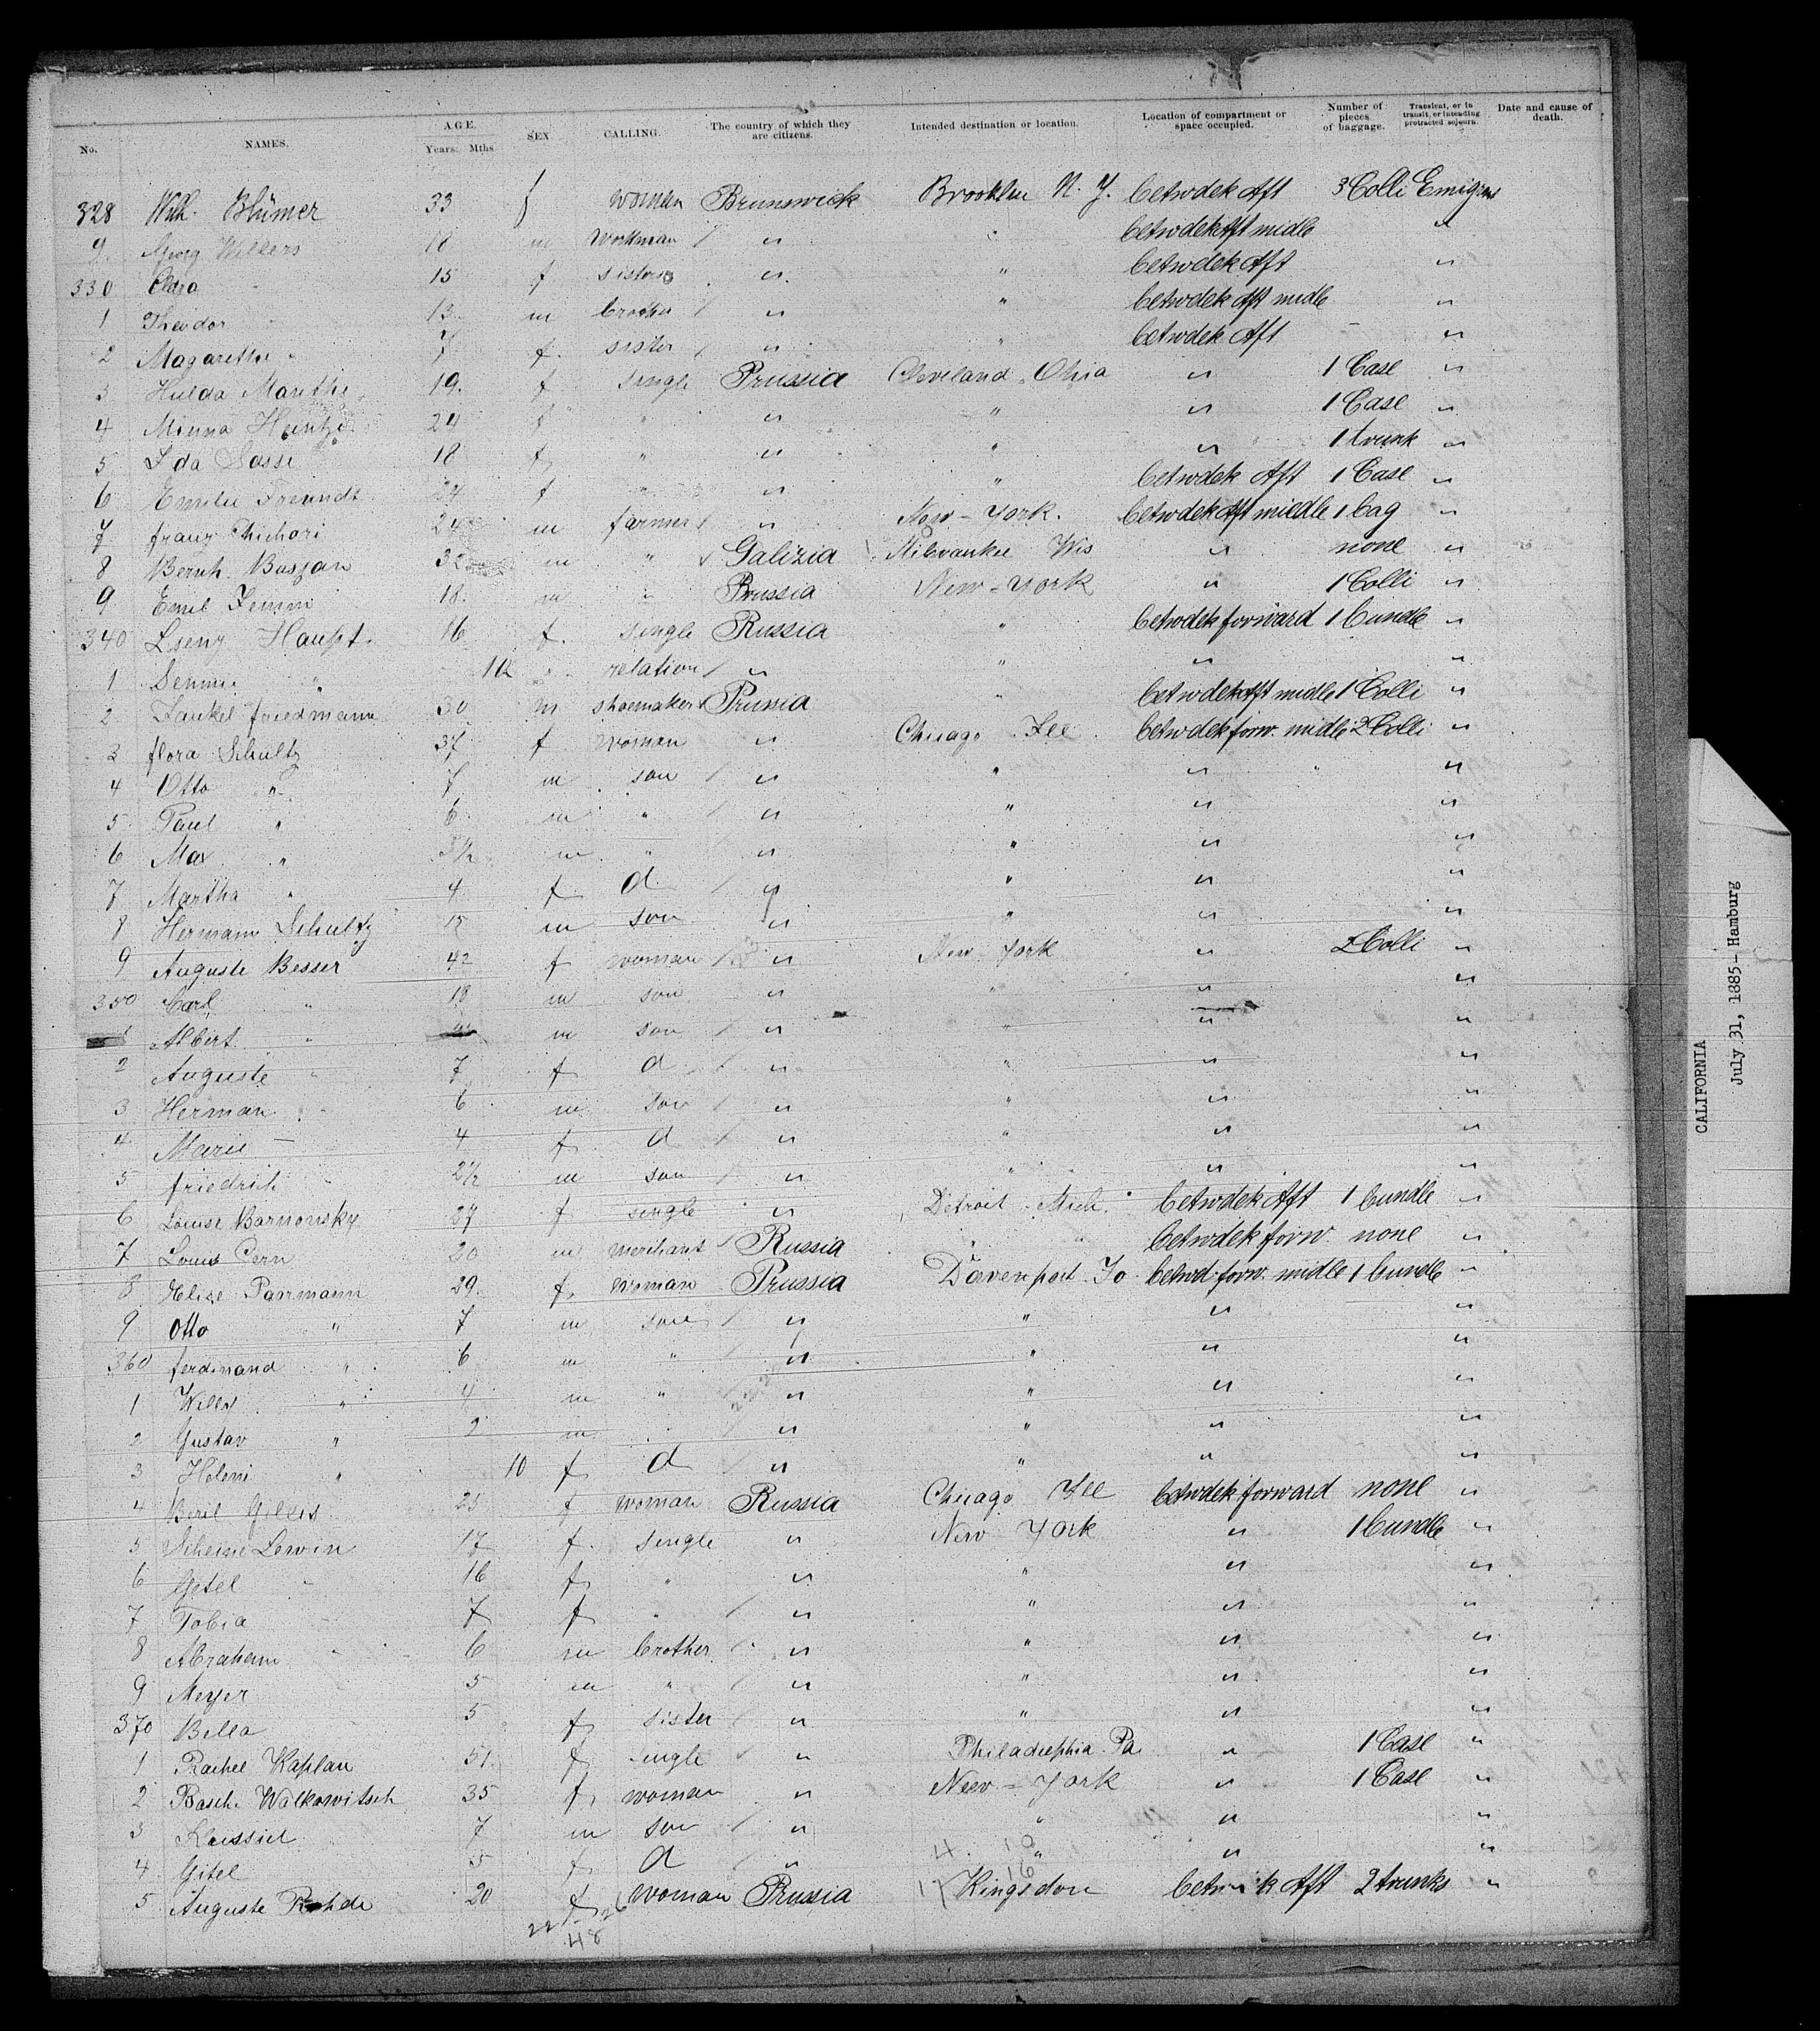 No. NAMES. AGE. Years. Mths SEX CALLING. The country of which they are citizens. Intended destination or location. Location of compartment or space occupied. Number of pieces of baggage. Transient, or in transit, or intending protracted sojourn. Date and cause of death.
328 Wilh. Blümer 33 f woman Brunswick Brooklin N. Y. betwdek Aft 3 Colli Emigrns
9 Georg Willers 18 m workman / " " betwdek Aft midle "
330 15 f " " betwdek Aft "
1 Theodor 13 m brother / " " betwdek Aft midle "
2 Magarethe " 7 f. sister / " " betwdek Aft "
3 Hulda Manthe 19. f single Prussia Cleveland. Ohio " 1 Case "
4 Minna Heintze 24 f " " " " 1 Case "
5 Ida Sasse 18 f " " " " 1 trunk "
6 Emilie Freundt 24 f " " " betwdek Aft 1 Case "
7 franz 24 m farmer / " New-York. betwdek Aft midle 1 bag "
8 Bernh. Busjan 32 m " Galizia Milwaukee Wis " none "
9 Emil 18. m " Prussia New-York " 1 Colli "
340 Haupt. 16 f. single Russia " betwdek forward 1 bundle "
1 " 10 " relation / " " " "
2 friedmann 30 m shoemaker Prussia " betwdek Aft midle 1 Colli "
3 flora Schultz 37 f woman " Chicago Ill betwdek forw. midle 2 Colli "
4 Otto " 7 m son / " " " "
5 Paul " 6 m " / " " " "
6 Max " 3½ m " / " " " "
7 Martha " 4 f d / " " " "
8 Hermann Schultz 15 m son " " " "
9 Auguste Besser 42 f woman / " New York " 2 Colli "
350 Carl " 18 m son " " " "
1 Albert " m son / " " " "
2 Auguste " 7 f d / " " " "
3 Herman " 6 m son / " " " "
4 Marie — 4 f d / " " " "
5 friedrich " 2½ m son / " " " "
6 Louise Barnowsky 27 f single " Detroit Mich. betwdek Aft 1 bundle "
7 Louis Cern 20 m merchant / Russia " betwdek forw. none "
8 Elise Parrmann 29. f. woman Prussia Davenport. Jo betwd. forw. midle 1 bundle "
9 Otto " 7 m son / " " " "
360 ferdinand " 6 m " / " " " "
1 Willy " 4 m " " " " "
2 Gustav " 2 m " / " " " "
3 Heleni " 10 f d / " " " "
4 25 f woman Russia Chicago Ill betwdek forward none "
5 Lewin 17 f. single " New York " 1 bundle "
6 Gitel " 16 f " " " " "
7 Tobia 7 f " / " " " "
8 Abraham " 6 m brother / " " " "
9 Meyer 5 m " / " " " "
370 Bella 5 f sister / " " " "
1 Rachel Kaplan 51. f single " Philadelphia. Pa. " 1 Case "
2 Basche Walkowitsch 35 f. woman " New-York " 1 Case "
3 7 m son / " " " "
4 Gitel 5 f. d / " " " "
5 Auguste Rohde 20 f woman Prussia Kingsdon betwdek Aft 2 trunks "
4 10
16
17
22 26
48
CALIFORNIA
July 31, 1885-Hamburg